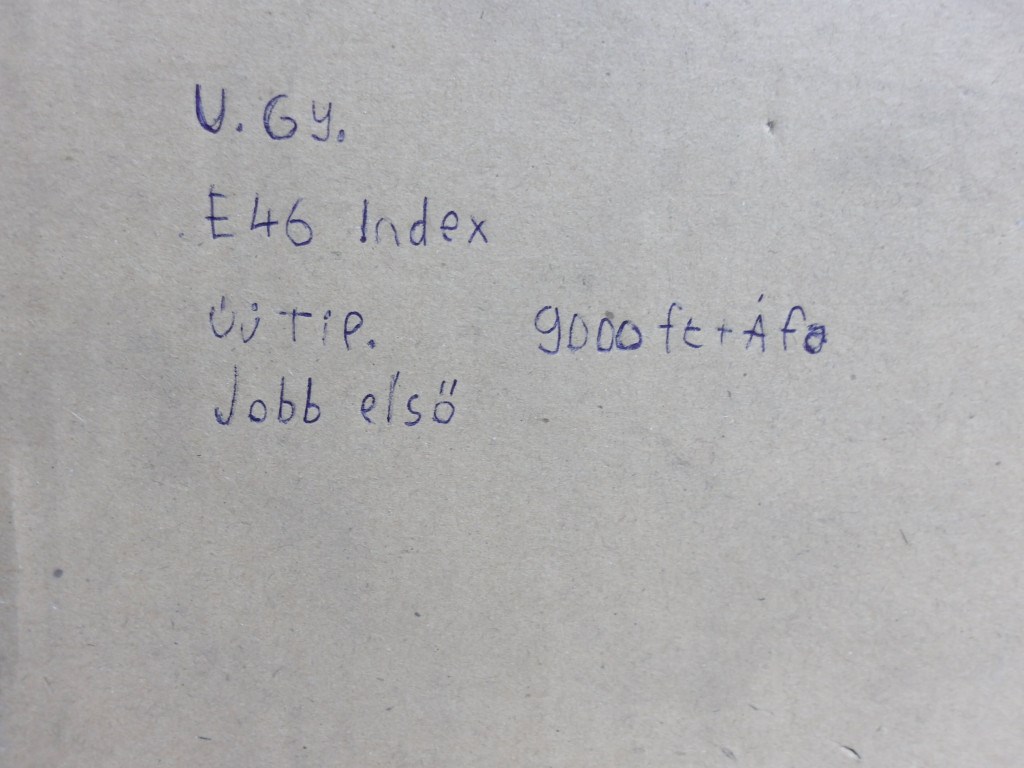 U. Gy.
E46 Index
Új Tip. 9000 ft + Áfa
Jobb első